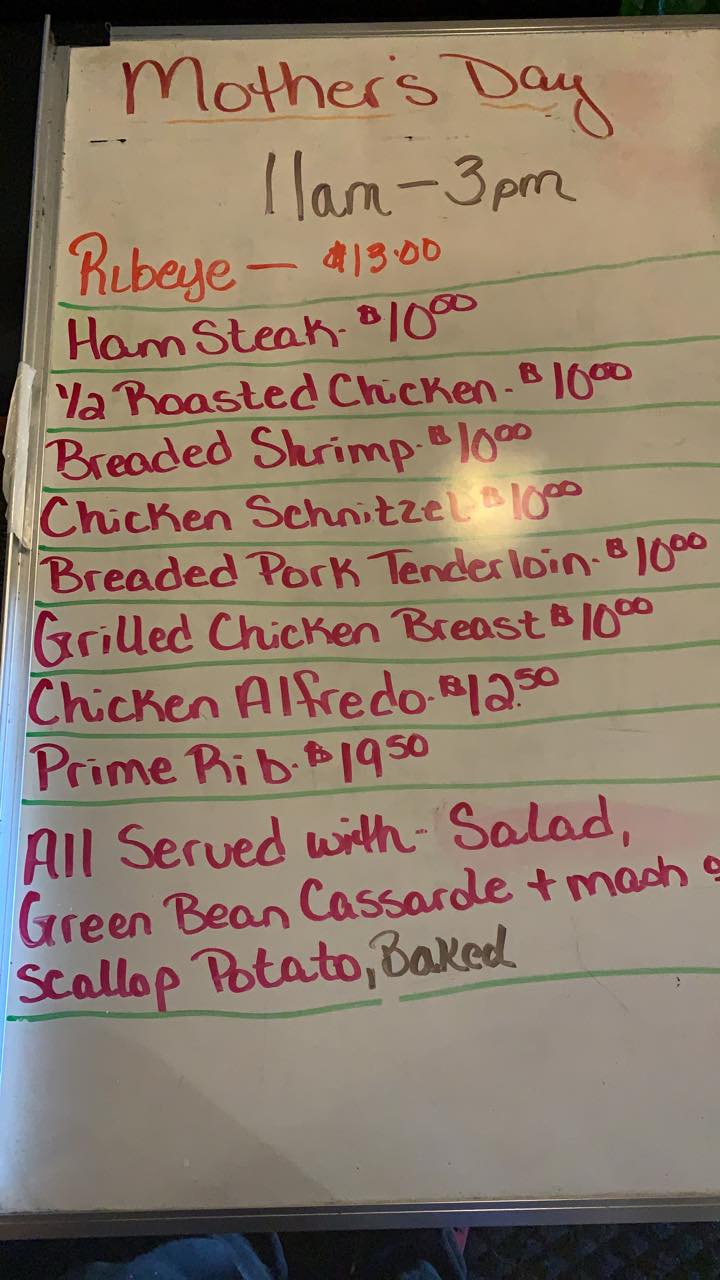 Mother's Day
11am - 3pm
Ribeye - $13.00
Ham Steak - $10⁰⁰
1/2 Roasted Chicken - $10⁰⁰
Breaded Shrimp - $10⁰⁰
Chicken Schnitzel - $10⁰⁰
Breaded Pork Tenderloin - $10⁰⁰
Grilled Chicken Breast $10⁰⁰
Chicken Alfredo - $12.⁵⁰
Prime Rib - $19⁵⁰
All Served with - Salad,
Green Bean Cassarole + mash
Scallop Potato, Baked